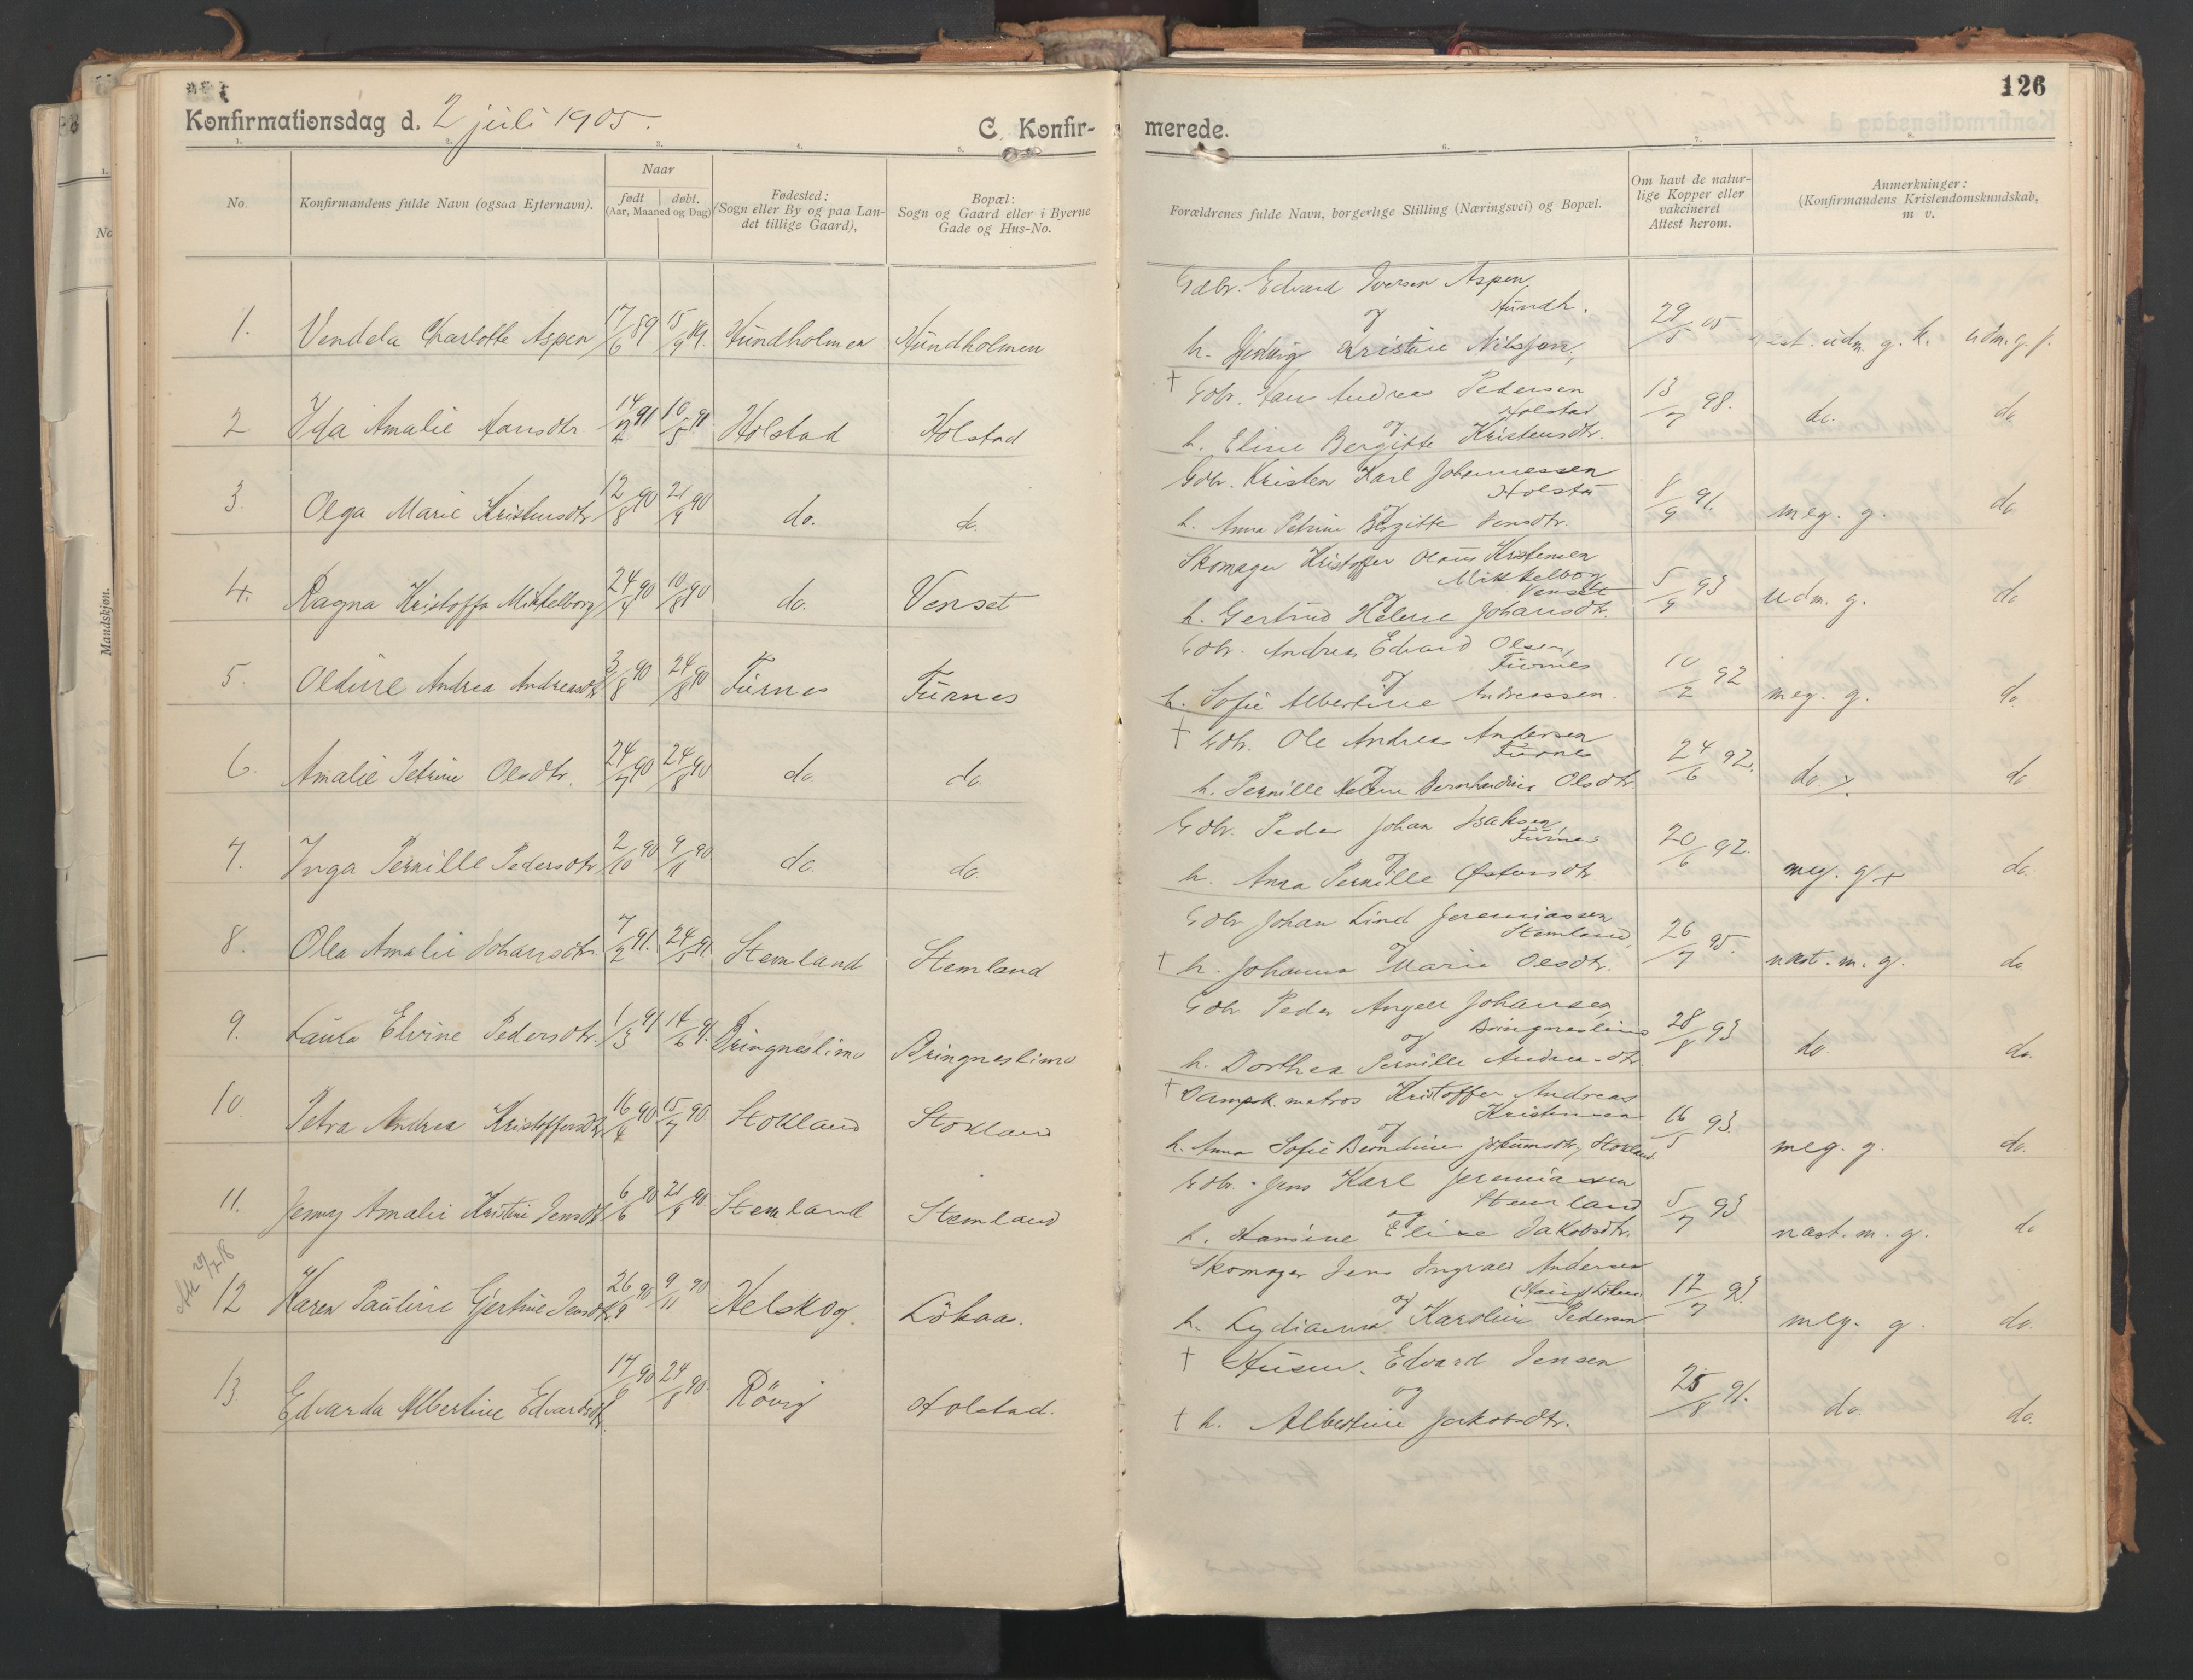 Konfirmationsdag d. 2 juli 1905. C. Konfir-
merede. 126
1. 2. 3. 4. 5. 6. 7. 8.
No.
Konfirmandens fulde Navn (ogsaa Efternavn).
Naar
født døbt.
(Aar, Maaned og Dag)
Fødested:
(Sogn eller By og paa Lan-
det tillige Gaard),
Bopæl:
Sogn og Gaard eller i Byerne
Gade og Hus-No.
Forældrenes fulde Navn, borgerlige Stilling (Næringsvei) og Bopæl.
Om havt de natur-
lige Kopper eller
vakcineret
Attest herom.
Anmerkninger:
(Konfirmandens Kristendomskundskab,
m v.
Gdbr. Edvard Iversen Aspen
Hundh.
1. Vendela Charlotte Aspen 17/6 89 15/9 89. Hundholmen Hundholmen og 29/5 05 næst. udm. g. k. udm. g. f.
h. Hedvig Kristine Nilsson,
† Gdbr. Hans Andreas Pedersen
Holstad
2 Ida Amalie Hansdtr 14/2 91 10/5 91 Holstad Holstad og 13/7 98. do. do.
h. Eline Bergitte Kristensdtr.
Gdbr. Kristen Karl Johannessen
Holstad
3. Olga Marie Kristensdtr 12/8 90 21/9 90 do. do. og 8/9 91. meg. g. do
h. Anna Petrine Bergitte Jensdtr.
Skomager Kristoffer Olaus Kristensen
Mikkelborg
Venset
4. Ragna Kristoffa Mikkelborg 24/4 90 10/8 90 do. Venset og 5/9 93 udm. g. do
h. Gertrud Helene Johansdtr.
Gdbr. Andreas Edvard Olsen,
Furnes
5. Oldine Andrea Andreasdtr. 3/8 90 24/8 90 Furnes Furnes og 10/2 92 meg. g. do
h. Sofie Albertine Andreassen.
† Gdbr. Ole Andreas Andersen
Furnes
6. Amalie Petrine Olsdtr. 24/7 90 24/8 90 do. do. og 24/6 92. do do
h. Pernille Helene Bernhardine Olsdtr
Gdbr. Peder Johan Isaksen,
Furnes
7. Inga Pernille Pedersdtr 2/10 90 9/11 90 do. do. og 20/6 92. meg. g + do.
h. Anna Pernille Østensdtr.
Gdbr Johan Lind Jeremiassen
Stemland,
8. Olea Amalie Johansdtr. 7/2 91. 24/5 91. Stemland Stemland og 26/7 95. næst. m. g. do.
† h. Johanna Marie Olsdtr.
Gdbr Peder Angell Johansen
Bringneslimo
9. Laura Elvine Pedersdtr. 1/3 91 14/6 91. Bringneslimo Bringneslimo og 28/8 93 do. do.
h. Dorthea Pernille Andreasdtr.
† Dampsk. matros Kristoffer Andreas
Kristensen
10. Petra Andrea Kristoffersdtr 16/4 90 15/7 90. Stokland Stokland og 16/5 93. meg. g. do.
h. Anna Sofie Berndine Johansdtr, Stokland.
Gdbr. Jens Karl Jeremiassen
Stemland
11. Jenny Amalie Kristine Jensdtr 6/6 90 21/9 90. Stemland Stemland og 5/7 93 næst. m. g. do
h. Hansine Elise Jakobsdtr.
Skomager Jens Ingvald Andersen
12 Karen Pauline Gjertine Jensdtr. 26/9 90 9/11 90 Helskog. Løkaas. og 12/7 93 meg. g. do.
h. Lydianna Karoline Pedersen
† Husm. Edvard Jensen
13 Edvarda Albertine Edvardsdtr. 17/6 90 24/8 90. Røvig Holstad. og 25/8 91. do. do.
† h. Albertine Jakobsdtr.
Mandskjøn.